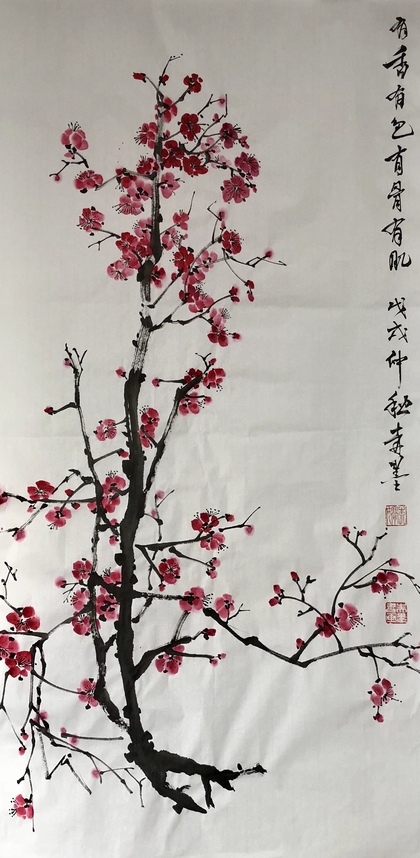 有香有色有骨有肌 戊戌仲秋 春墨